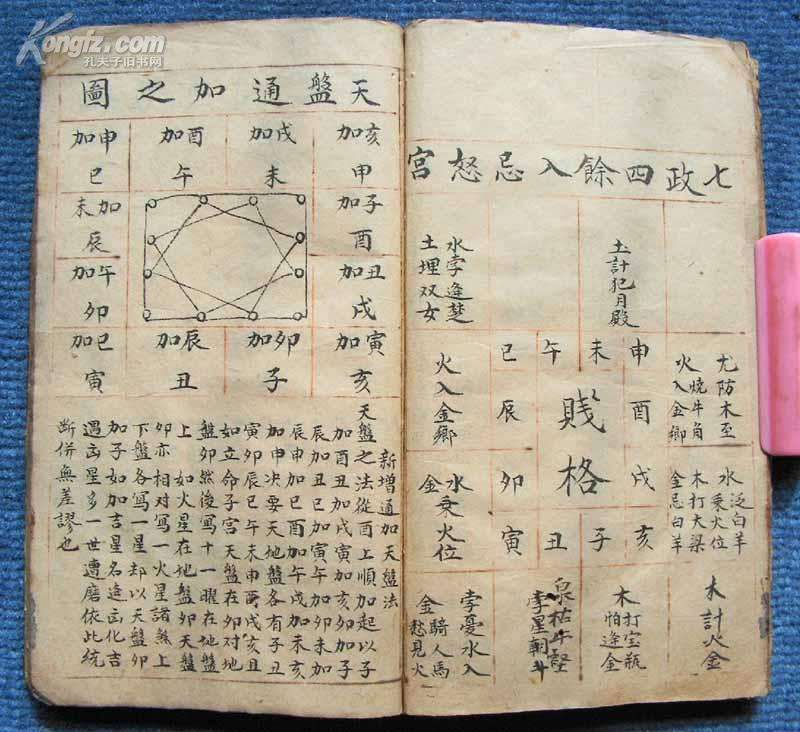 Kongfz.com
孔夫子旧书网
七政四餘入忌怒宮
土計犯月殿
水孛逢楚
土埋双女
尤防木至
火燒牛角
火入金鄉
申
未
午
巳
火入金鄉
賤格
酉
辰
水泛白羊
水乘火位
木打大梁
金忌白羊
戌
卯
水乘火位
金
亥
子
丑
寅
木計火金
木打宝瓶
怕逢金
泉枯牛
孛星朝斗
孛憂水入
金騎人馬
愁見火
天盤通加之圖
亥加申
戌加未
酉加午
申加巳
子加酉
加未辰
丑加戌
午加卯
寅加亥
卯加子
辰加丑
巳加寅
新增通加天盤法
天盤之法從酉上順加起以子
加酉丑加戌寅加亥卯加子
辰加丑巳加寅午加卯未加
辰申加巳酉加午戌加未亥
加申决要天地盤各有子丑
寅卯辰巳午未申酉戌亥且
如立命子宮天盤在卯对地
盤卯然後寫十一曜在地盤
上如火星在地盤卯天盤
卯亦相对寫一火星諸煞上
下盤各寫一星却以天盤卯
加子如加吉星名逢凶化吉
遇凶星多一世遭磨依此統
断併無差謬也